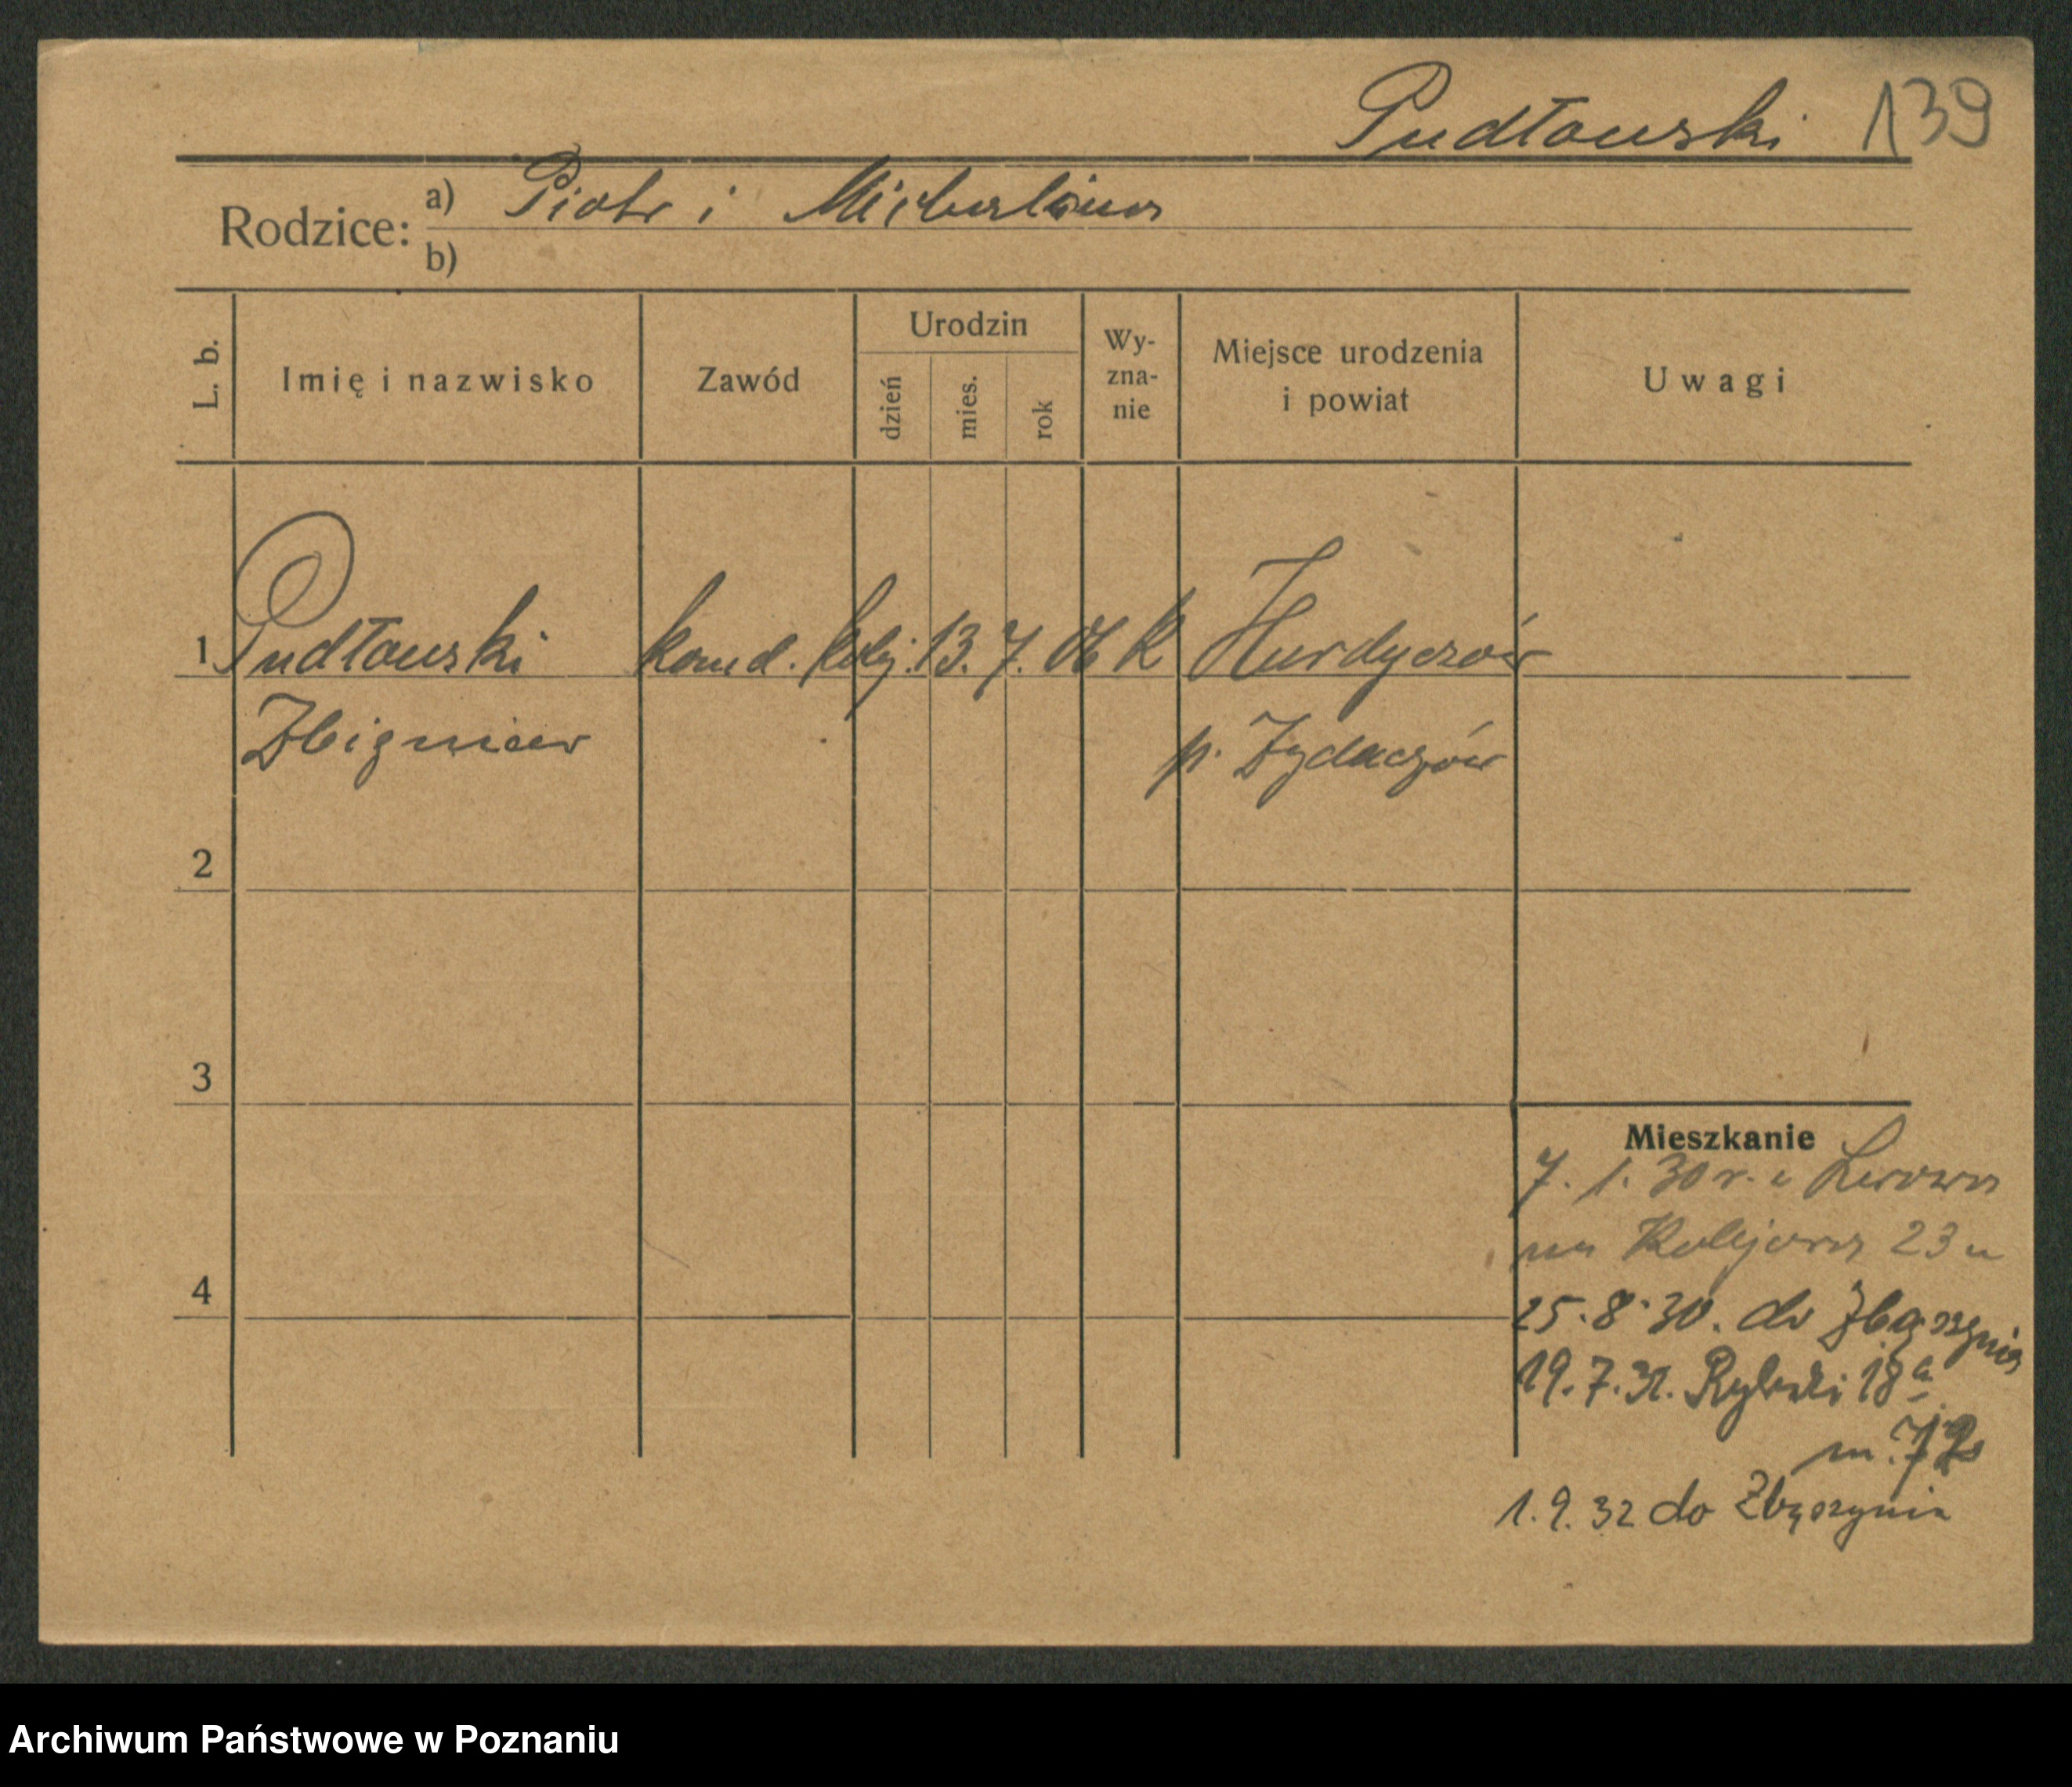 Pudłowski 139
Rodzice: a) Piotr i Michalina
b)
L. b. Imię i nazwisko Zawód Urodzin dzień mies. rok Wy-zna-nie Miejsce urodzenia i powiat Uwagi
1 Pudłowski kand. kolej. 13. 7. 06 K Hurdyczów
Zbigniew p. Żydaczów
2
3
Mieszkanie
7. 1. 30 r. z Lwowa
na Kolejowa 23
4
25. 8. 30. do Zbąszynia
19. 7. 31. Rybaki 18a
m.
1. 9. 32 do Zbąszynia
Archiwum Państwowe w Poznaniu